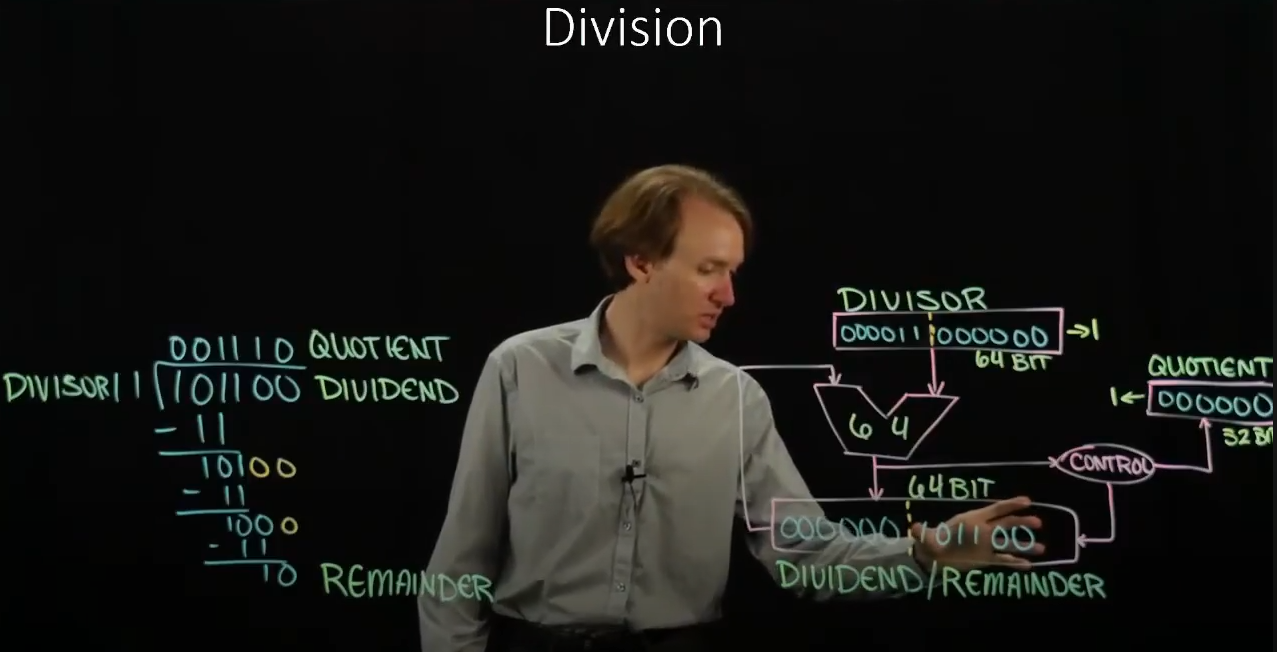 Division
001110 QUOTIENT
DIVISOR 11 101100 DIVIDEND
- 11
10100
- 11
1000
- 11
10 REMAINDER
DIVISOR
000011 000000 →1
64 BIT
64
QUOTIENT
1← 000000
32 BI
CONTROL
64 BIT
000000 101100
DIVIDEND/REMAINDER